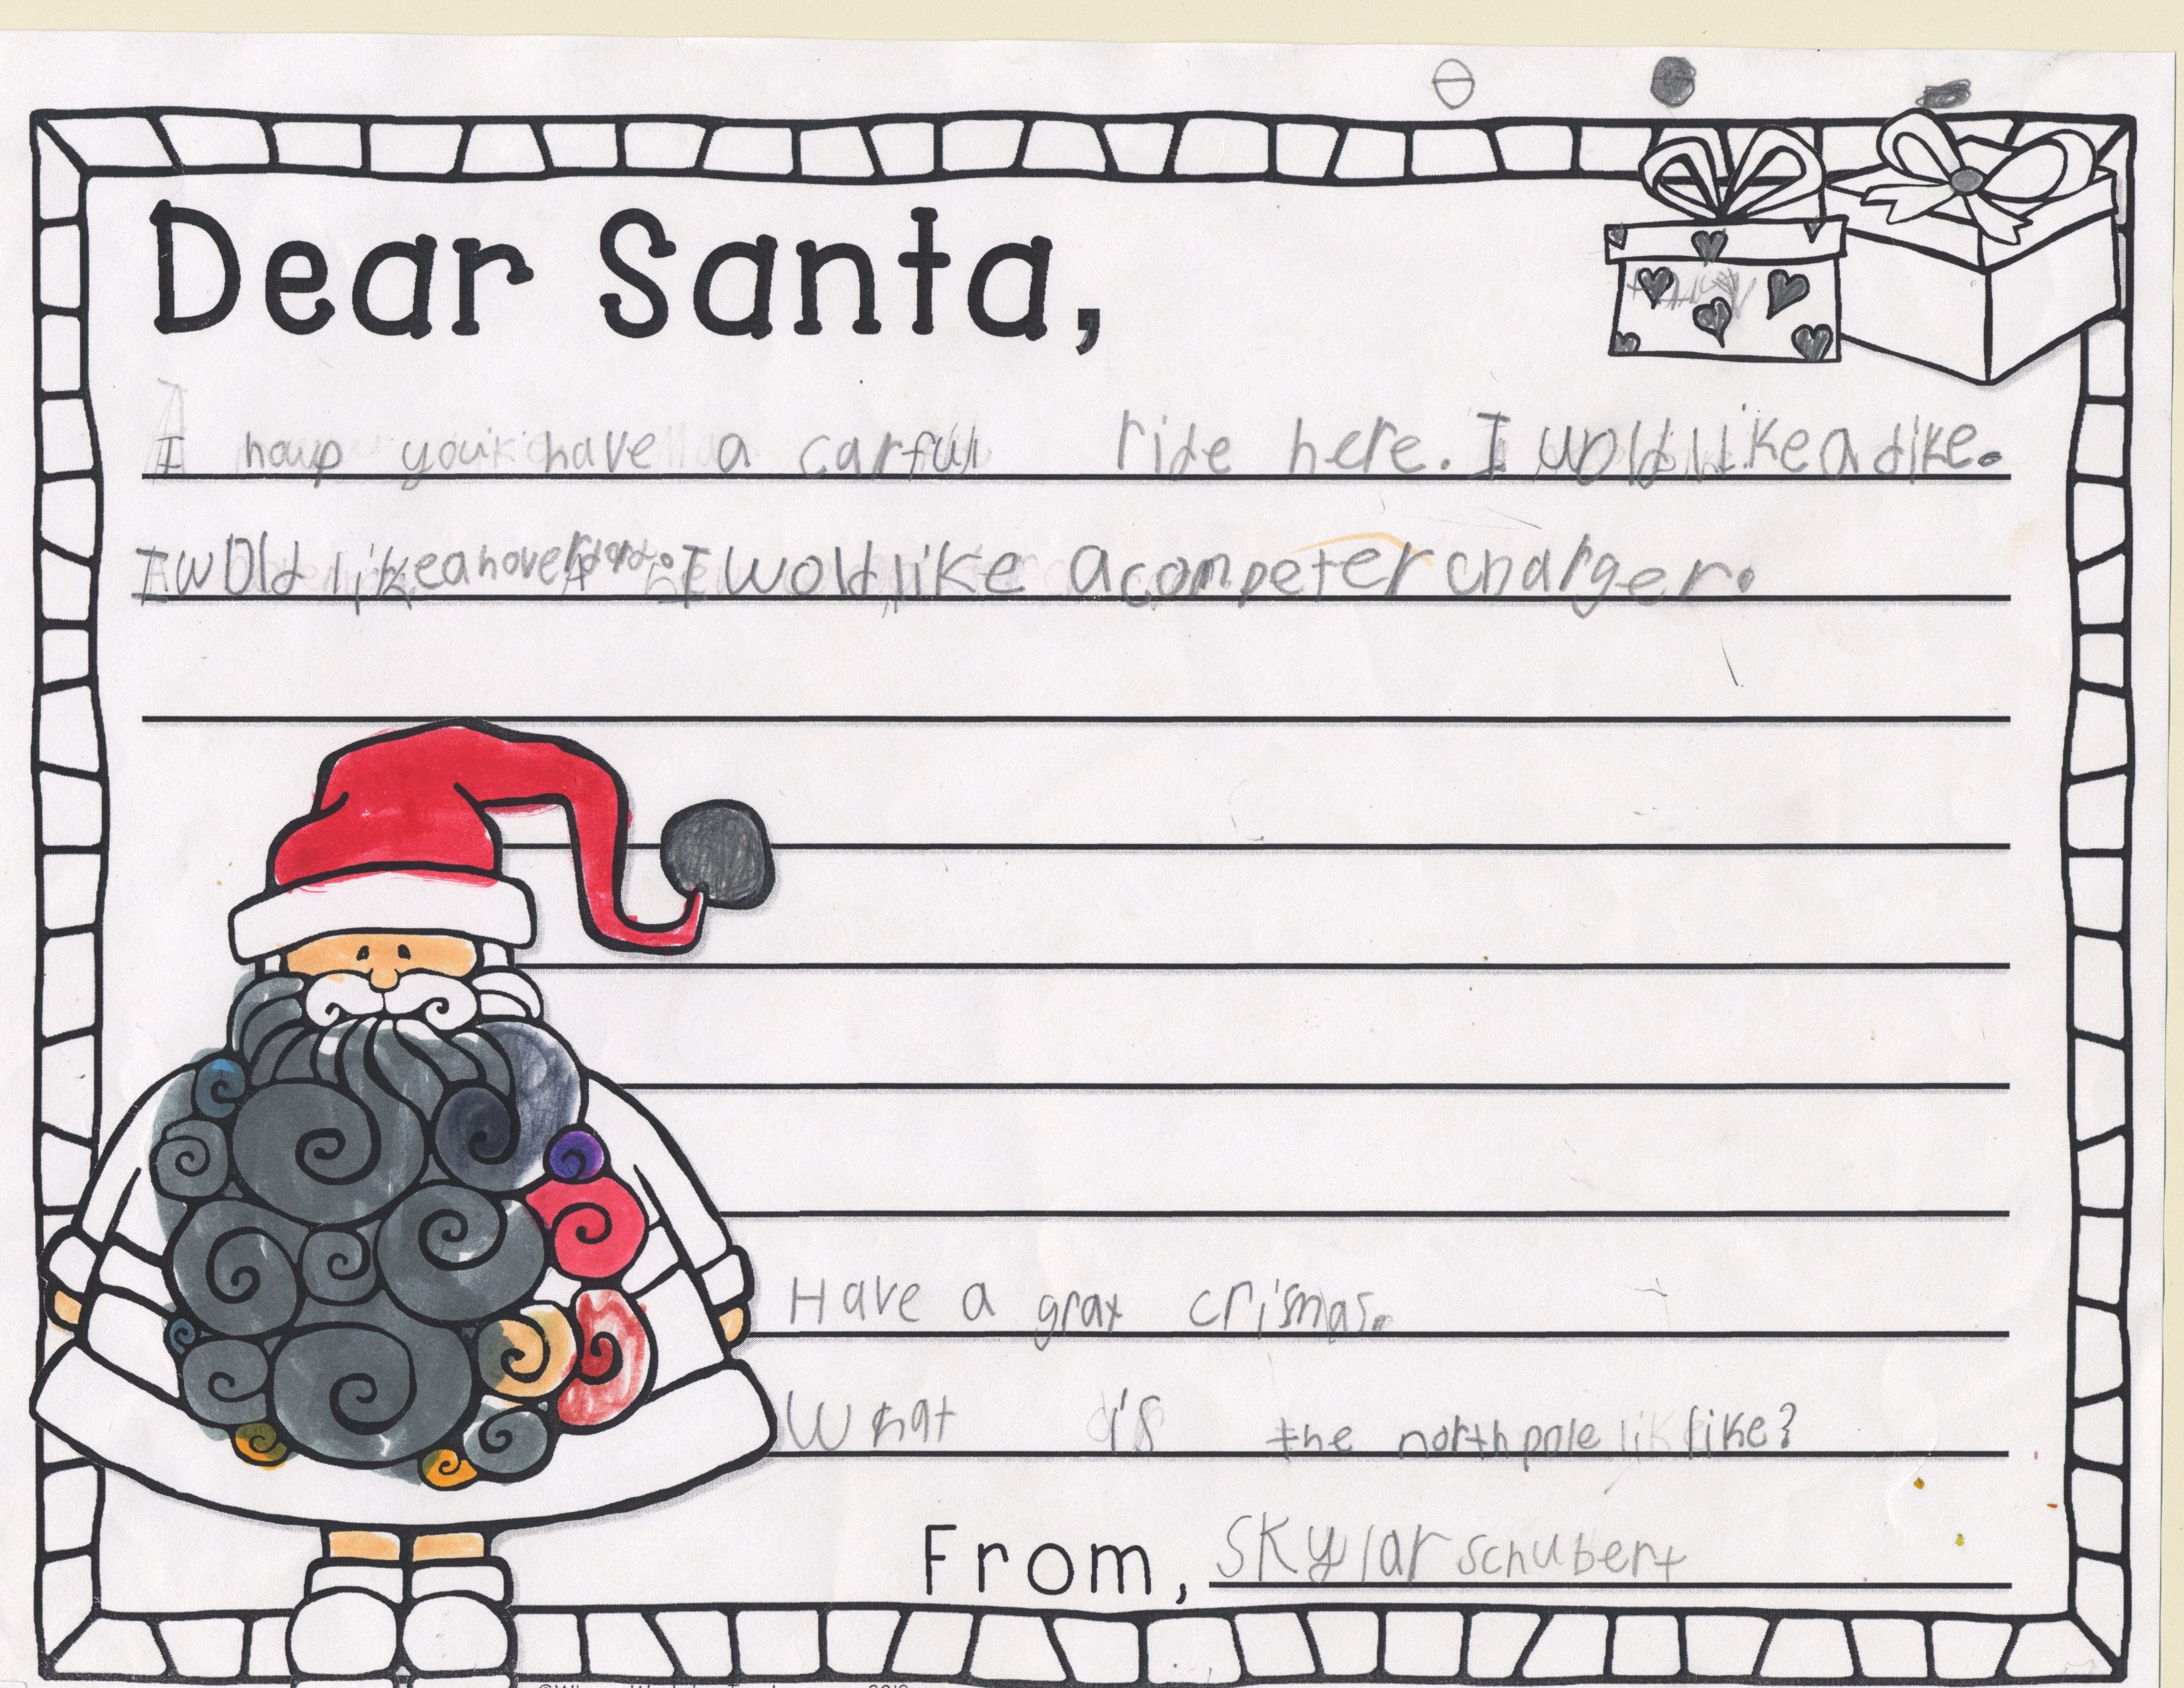 Dear Santa,
I houp you have a carful ride here. I wold like a dike.
I wold like a hover I wold like a competer charger.
Have a grat crismas.
What is the north pole like?
From, Skylar schubert